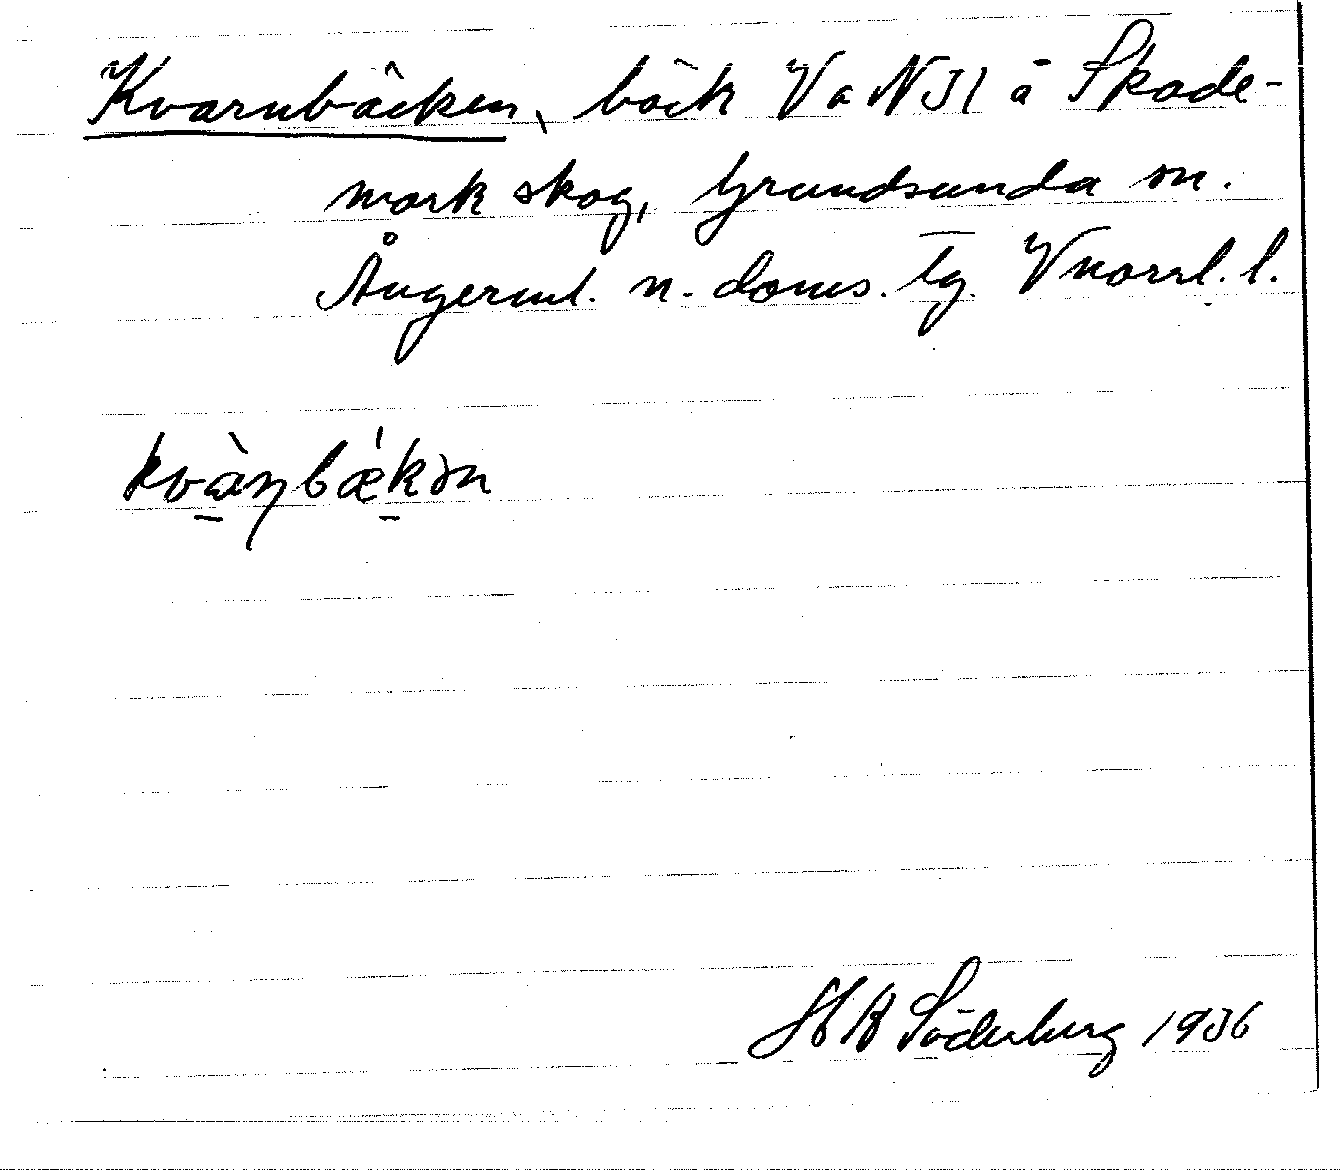 Kvarnbäcken, bäck V a N JI å Skade-
mark skog, Grundsunda sn.
Ångerml. n. doms. tg. Vnorrl. l.
kvànbǽkən
H B Söderberg 1936